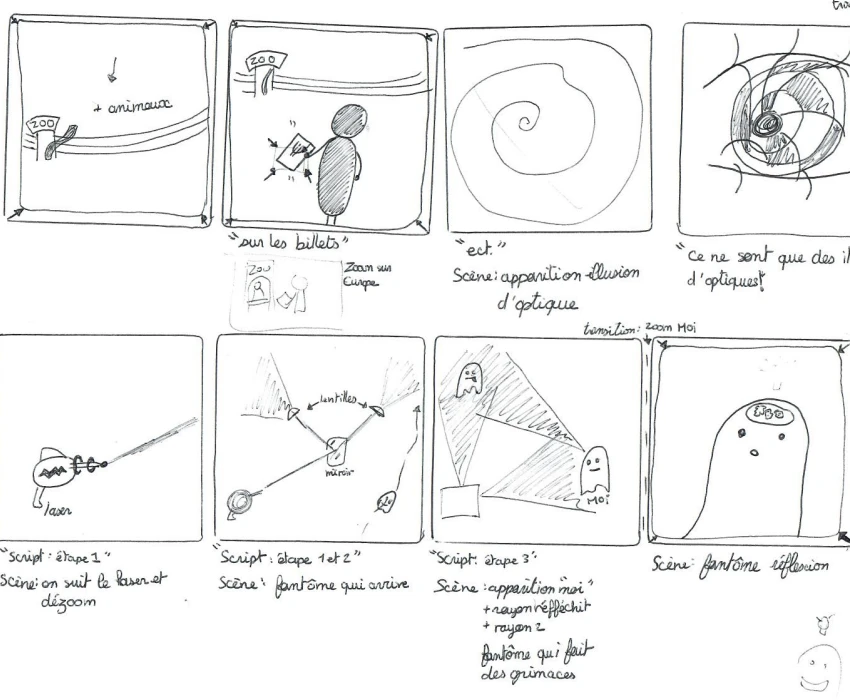 ZOO
+ animaux
ZOO
"sur les billets"
Zoo
Zoom sur
Europe
"ect."
Scène: apparition illusion
d'optique
"Ce ne sont que des il
d'optiques!
laser
"Script: étape 1"
Scène: on suit le laser et
dézoom
lentilles
miroir
"Script: étape 1 et 2"
Scène: fantôme qui arrive
MOI
"Script: étape 3"
Scène: apparition "moi"
+ rayon réfléchit
+ rayon 2
fantôme qui fait
des grimaces
transition: zoom MOI
Scène: fantôme réflexion